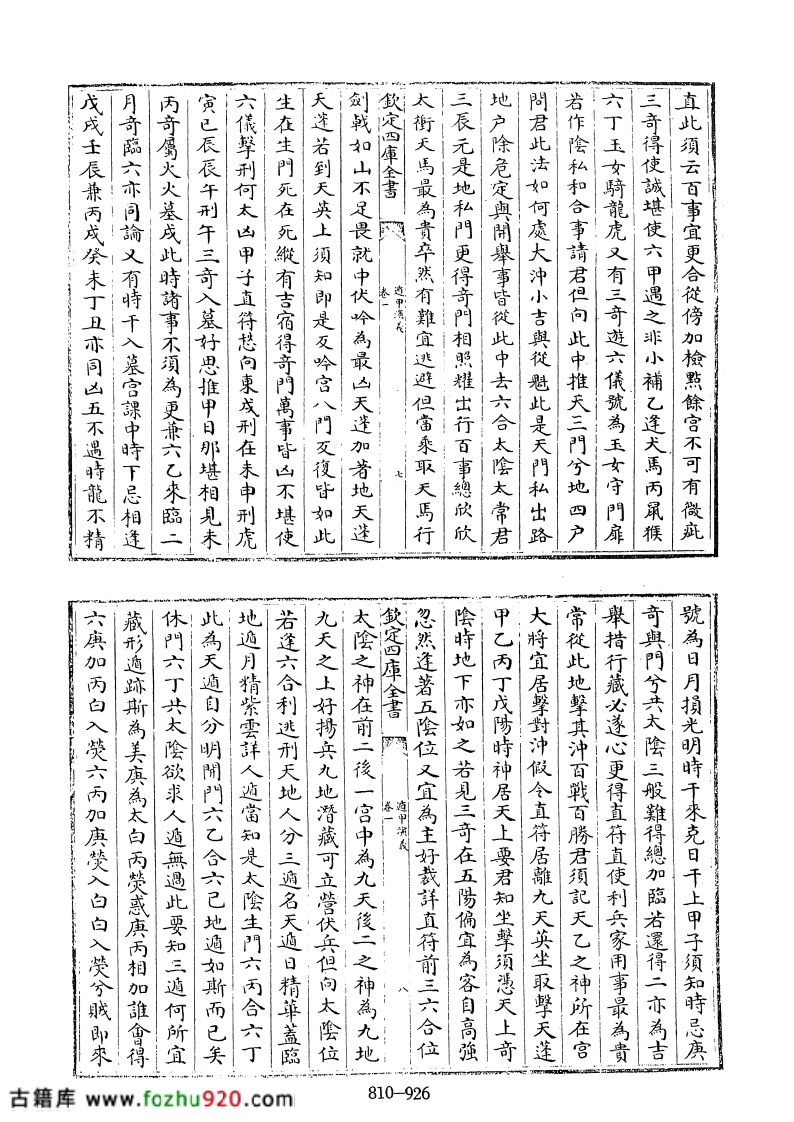 直此須云百事宜更合從傍加檢點餘宮不可有微疵
三奇得使誠堪使六甲遇之非小補乙逢犬馬丙鼠猴
六丁玉女騎龍虎又有三奇遊六儀號為玉女守門扉
若作陰私和合事請君但向此中推天三門兮地四户
問君此法如何處太沖小吉與從魁此是天門私出路
地户除危定與開舉事皆從此中去六合太陰太常君
三辰元是地私門更得奇門相照耀出行百事總欣欣
太衝天馬最為貴卒然有難宜逃避但當乘取天馬行
欽定四庫全書
遁甲演義
卷一
七
劍戟如山不足畏就中伏吟為最凶天蓬加著地天蓬
天蓬若到天英上須知即是反吟宮八門反復皆如此
生在生門死在死縱有吉宿得奇門萬事皆凶不堪使
六儀擊刑何太凶甲子直符愁向東戌刑在未申刑虎
寅巳辰辰午刑午三奇入墓好思推甲日那堪相見未
丙奇屬火火墓戌此時諸事不須為更兼六乙來臨二
月奇臨六亦同論又有時干入墓宮課中時下忌相逢
戊戌壬辰兼丙戌癸未丁丑亦同凶五不遇時龍不精
號為日月損光明時干來克日干上甲子須知時忌庚
奇與門兮共太陰三般難得總加臨若還得二亦為吉
舉措行藏必遂心更得直符直使利兵家用事最為貴
常從此地擊其沖百戰百勝君須記天乙之神所在宮
大將宜居擊對沖假令直符居離九天英坐取擊天蓬
甲乙丙丁戊陽時神居天上要君知坐擊須憑天上奇
陰時地下亦如之若見三奇在五陽偏宜為客自高強
忽然逢著五陰位又宜為主好裁詳直符前三六合位
欽定四庫全書
遁甲演義
卷一
八
太陰之神在前二後一宮中為九天後二之神為九地
九天之上好揚兵九地潛藏可立營伏兵但向太陰位
若逢六合利逃刑天地人分三遁名天遁日精華蓋臨
地遁月精紫雲詳人遁當知是太陰生門六丙合六丁
此為天遁自分明開門六乙合六己地遁如斯而已矣
休門六丁共太陰欲求人遁無過此要知三遁何所宜
藏形遁跡斯為美庚為太白丙熒惑庚丙相加誰會得
六庚加丙白入熒六丙加庚熒入白白入熒兮賊即來
810—926
古籍库 www.fozhu920.com